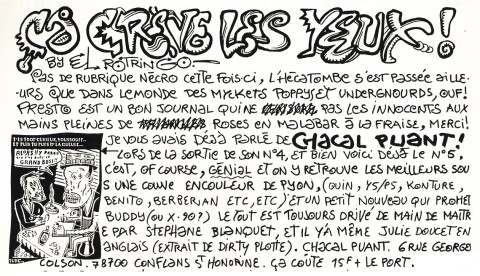 ÇÀ CRÈVE LES YEUX!
BY EL ROTRINGO
PAS DE RUBRIQUE NÉCRO CETTE FOIS-CI, L'HÉCATOMBE S'EST PASSÉE AILLE-
URS QUE DANS LE MONDE DES MYCKETS POPPYS ET UNDERGNOURDS, OUF!
PRESTO EST UN BON JOURNAL QUI NE PAS LES INNOCENTES AUX
MAINS PLEINES DE ROSES EN MALABAR À LA FRAISE, MERCI!
JE VOUS AVAIS DÉJÀ PARLÉ DE CHACAL PUANT!
LORS DE LA SORTIE DE SON N°4, ET BIEN VOICI DÉJÀ LE N°5,
C'EST, OF COURSE, GÉNIAL ET ON Y RETROUVE LES MEILLEURS SOU
S UNE COUVE EN COULEUR DE PYON, (OUIN, Y5/P5, KONTURE,
BENITO, BERBERIAN ETC, ETC,) ET UN PETIT NOUVEAU QUI PROMET
BUDDY (OU X-90?) LE TOUT EST TOUJOURS DRIVÉ DE MAIN DE MAITR
E PAR STEPHANE BLANQUET, ET IL Y'A MÊME JULIE DOUCET EN
ANGLAIS (EXTRAIT DE DIRTY PLOTTE). CHACAL PUANT. 6 RUE GEORGE
COLSON. 78700 CONFLANS ST HONORINE. ÇA COÛTE 15F + LE PORT.